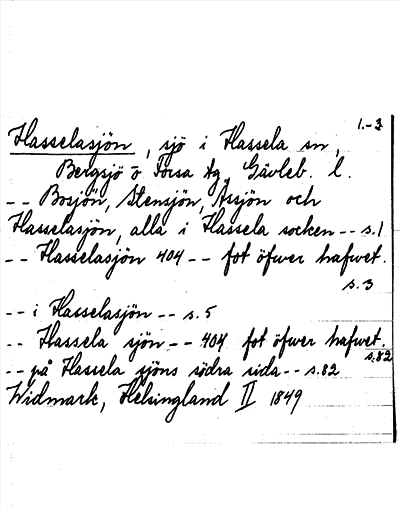 1.-3
Hasselasjön, sjö i Hassela sn,
Bergsjö o Forsa tg, Gävleb. l.
-- Bosjön, Stensjön, Assjön och
Hasselasjön, alla i Hassela socken -- s.1
-- Hasselasjön 404 -- fot öfwer hafwet.
s.3
-- i Hasselasjön -- s.5
-- Hassela sjön -- 404 fot öfwer hafwet.
s.82
-- på Hassela sjöns södra sida -- s.82
Widmark, Helsingland II 1849